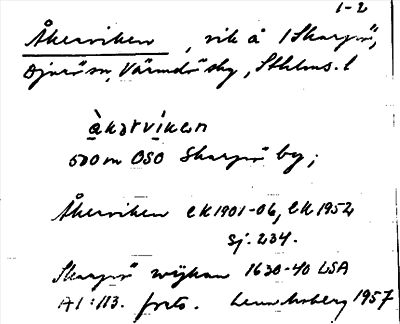 1-2
Åkerviken, vik å 1 Skarpö,
Djurö sn, Värmdö skg, Sthlms. l
àkərvíken
500 m OSO Skarpö by;
Åkerviken EK 1901-06, EK 1952
Sj. 234.
Skarpö wijkan 1630-40 LSA
A1:113. forts. 1957